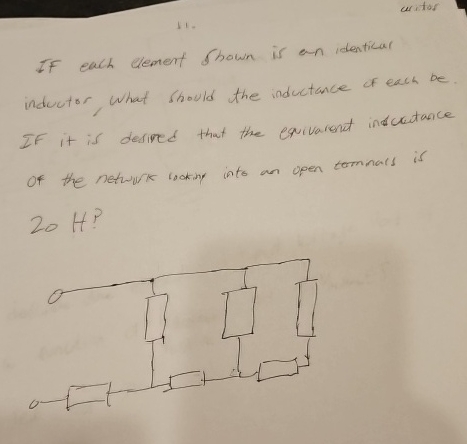 11.
IF each element shown is an identical
inductor, what should the inductance of each be
IF it is desired that the equivalent inductance
OF the network looking into an open terminals is
20 H?